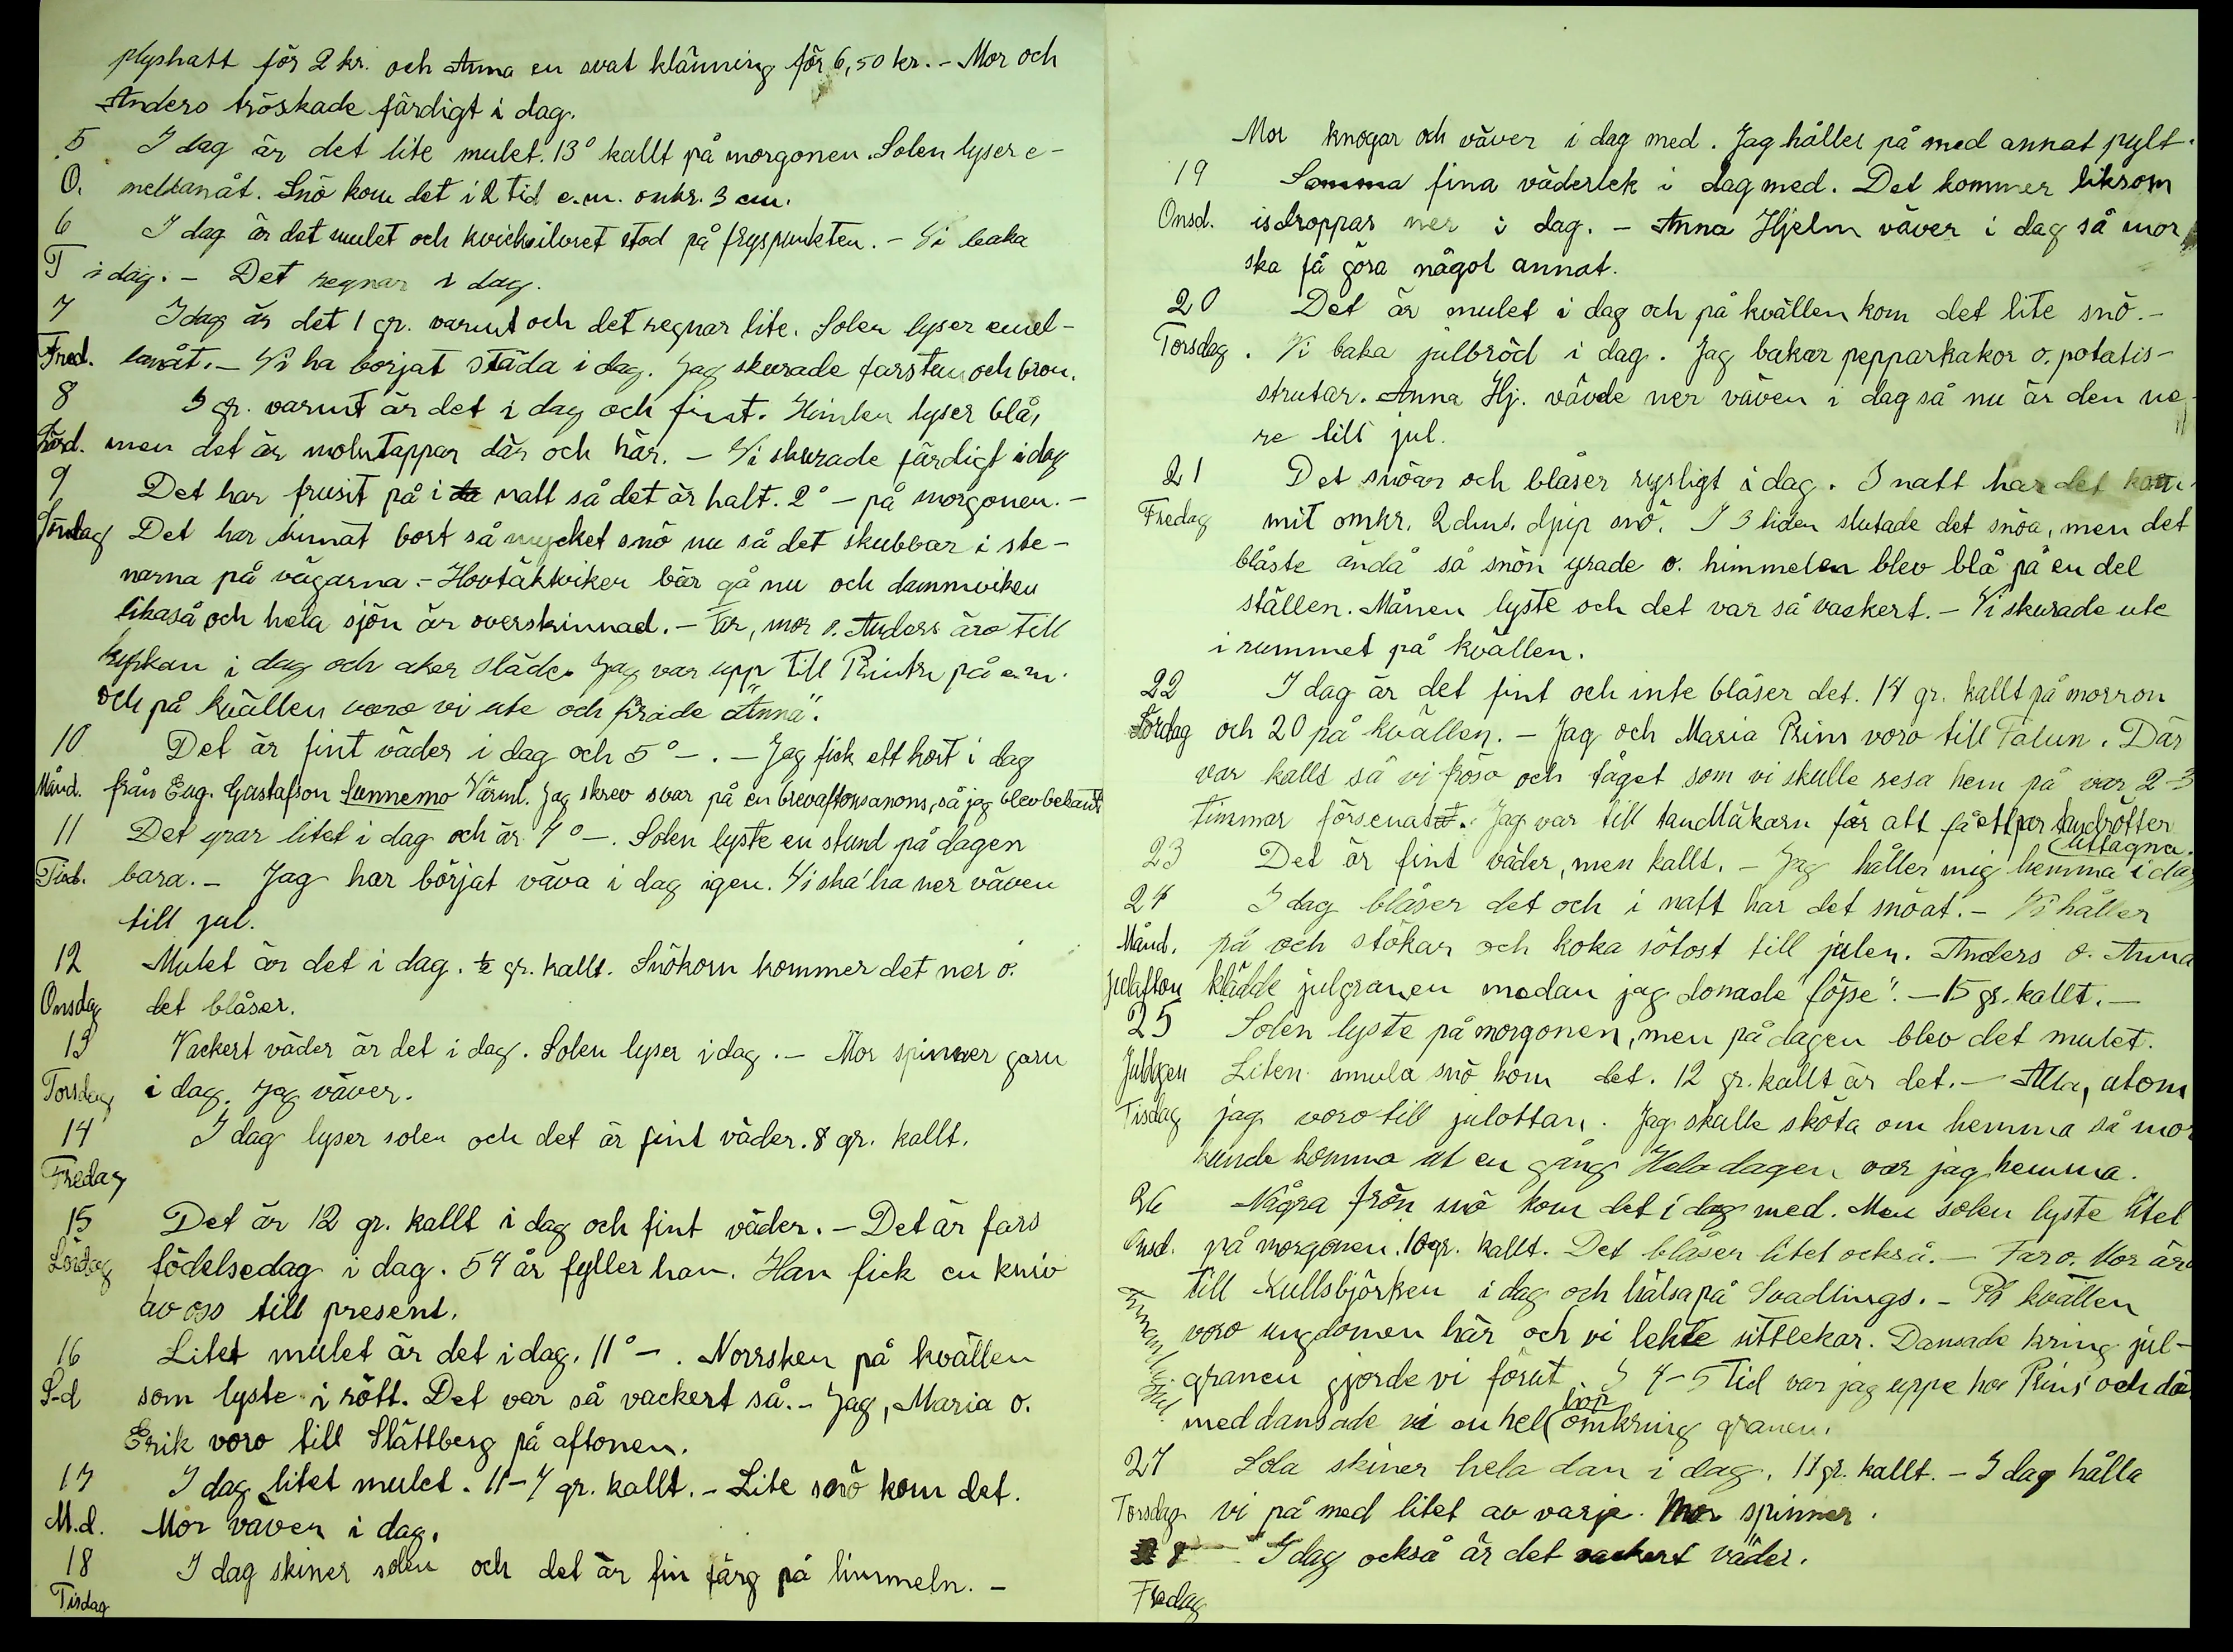 plyshatt för 2 kr. och Anna en svat klänning för 6,50 kr. - Mor och
Anders tröskade färdigt i dag.
5 I dag är det lite mulet. 13° kallt på morgonen. Solen lyser e-
O. mellanåt. Snö kom det i 2 tid e.m. omkr. 3 cm.
6 I dag är det mulet och kvicksilvret stod på fryspunkten. - Vi baka
T i dag. - Det regnar i dag.
7 I dag är det 1 gr. varmt och det regnar lite. Solen lyser emel-
Fred. lanåt. - Vi ha börjat städa i dag. Jag skurade farstun och bron.
8 3 gr. varmt är det i dag och fint. Himlen lyser blå,
Lörd. men det är molntappar där och här. - Vi skurade färdigt i dag
9 Det har frusit på i da natt så det är halt. 2° - på morgonen. -
Söndag Det har tinnat bort så mycket snö nu så det skubbar i ste-
narna på vägarna. - Hovtäktviken bär gå nu och dammviken
likaså och hela sjön är överskinnad. - Far, mor o. Anders äro till
kyrkan i dag och åker släde. Jag var upp till Prints på e.m.
och på kvällen voro vi ute och firade "Anna".
10 Det är fint väder i dag och 5° - . - Jag fick ett kort i dag
Månd. från Eug. Gustafson Sunnemo Värml. Jag skrev svar på en brevaftonsanons, så jag blev bekant
11 Det yrar litet i dag och är 7° -. Solen lyste en stund på dagen
Tisd. bara. - Jag har börjat väva i dag igen. Vi ska' ha ner väven
till jul.
12 Mulet är det i dag. ½ gr. kallt. Snökorn kommer det ner o.
Onsdag det blåser.
13 Vackert väder är det i dag. Solen lyser i dag. - Mor spinner garn
Torsdag i dag. Jag väver.
14 I dag lyser solen och det är fint väder. 8 gr. kallt.
Fredag
15 Det är 12 gr. kallt i dag och fint väder. - Det är fars
Lördag födelsedag i dag. 57 år fyller han. Han fick en kniv
av oss till present.
16 Litet mulet är det i dag. 11° - . Norrsken på kvällen
S-d som lyste i rött. Det var så vackert så. - Jag, Maria o.
Erik voro till Slättberg på aftonen.
17 I dag litet mulet. 11-7 gr. kallt. - Lite snö kom det.
M.d. Mor väver i dag.
18 I dag skiner solen och det är fin färg på himmeln. -
Tisdag
Mor knogar och väver i dag med. Jag håller på med annat pylt.
19 Samma fina väderlek i dag med. Det kommer liksom
Onsd. isdroppar ner i dag. - Anna Hjelm väver i dag så mor
ska få göra något annat.
20 Det är mulet i dag och på kvällen kom det lite snö. -
Torsdag. Vi baka julbröd i dag. Jag bakar pepparkakor o. potatis-
strutar. Anna Hj. vävde ner väven i dag så nu är den ne-
re till jul.
21 Det snöar och blåser rysligt i dag. I natt har det kom-
Fredag mit omkr. 2 dms. djup snö. I 3 tiden slutade det snöa, men det
blåste ändå så snön yrade o. himmelen blev blå på en del
ställen. Månen lyste och det var så vackert. - Vi skurade ute
i rummet på kvällen.
22 I dag är det fint och inte blåser det. 14 gr. kallt på morron
Lördag och 20 på kvällen. - Jag och Maria Prins voro till Falun. Där
var kallt så vi fröso och tåget som vi skulle resa hem på var 2-3
timmar försenat. Jag var till tandläkarn för att få ett par tandrötter
uttagna.
23 Det är fint väder, men kallt. - Jag håller mig hemma i dag
24 I dag blåser det och i natt har det snöat. - Vi håller
Månd. på och stökar och koka sötost till julen. Anders o. Anna
Julafton klädde julgranen medan jag donade "föjse". - 15 gr. kallt. -
25 Solen lyste på morgonen, men på dagen blev det mulet.
Juldgen Liten smula snö kom det. 12 gr. kallt är det. - Alla, utom
Tisdag jag voro till julottan. Jag skulle sköta om hemma så mor
kunde komma ut en gång. Hela dagen var jag hemma.
26 Några frön snö kom det i dag med. Men solen lyste litet
Onsd. på morgonen. 10 gr. kallt. Det blåser litet också. - Far o. Mor äro
till Kullsbjörken i dag och hälsa på Svadlings. - På kvällen
voro ungdomen här och vi lekte sittlekar. Dansade kring jul-
granen gjorde vi förut. I 4-5 tid var jag uppe hos Prins' och där
med dansade vi en hel hop omkring granen.
27 Sola skiner hela dan i dag. 11 gr. kallt. - I dag hålla
Torsdag vi på med litet av varje. Mor spinner.
28 I dag också är det vackert väder.
Fredag